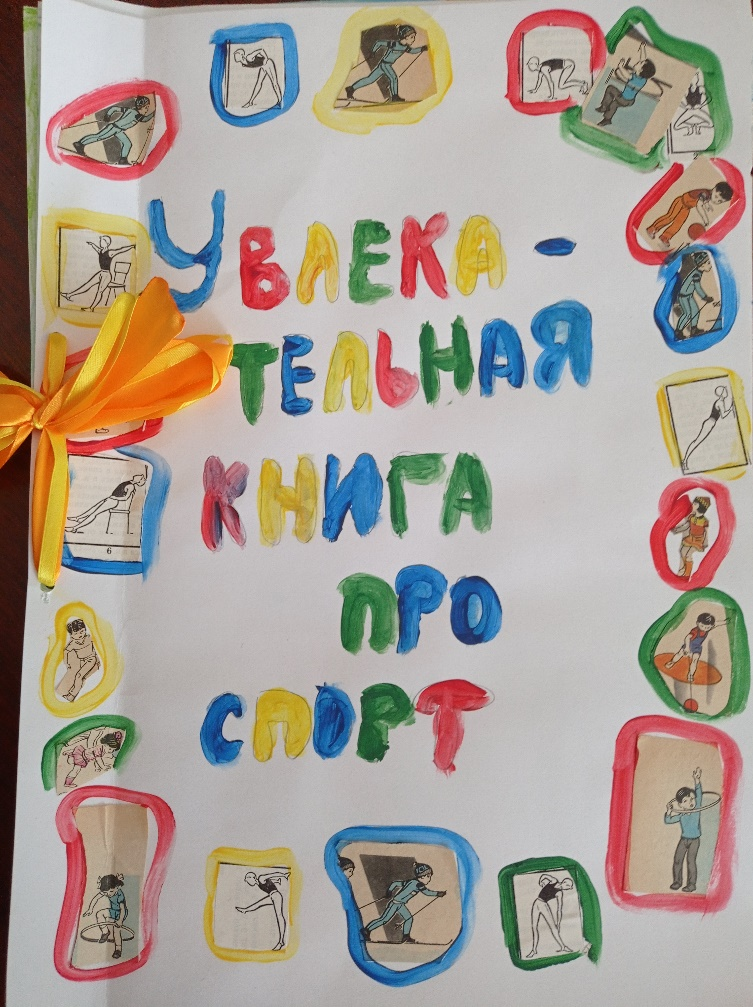 УВЛЕКА-
ТЕЛЬНАЯ
КНИГА
ПРО
СПОРТ
6